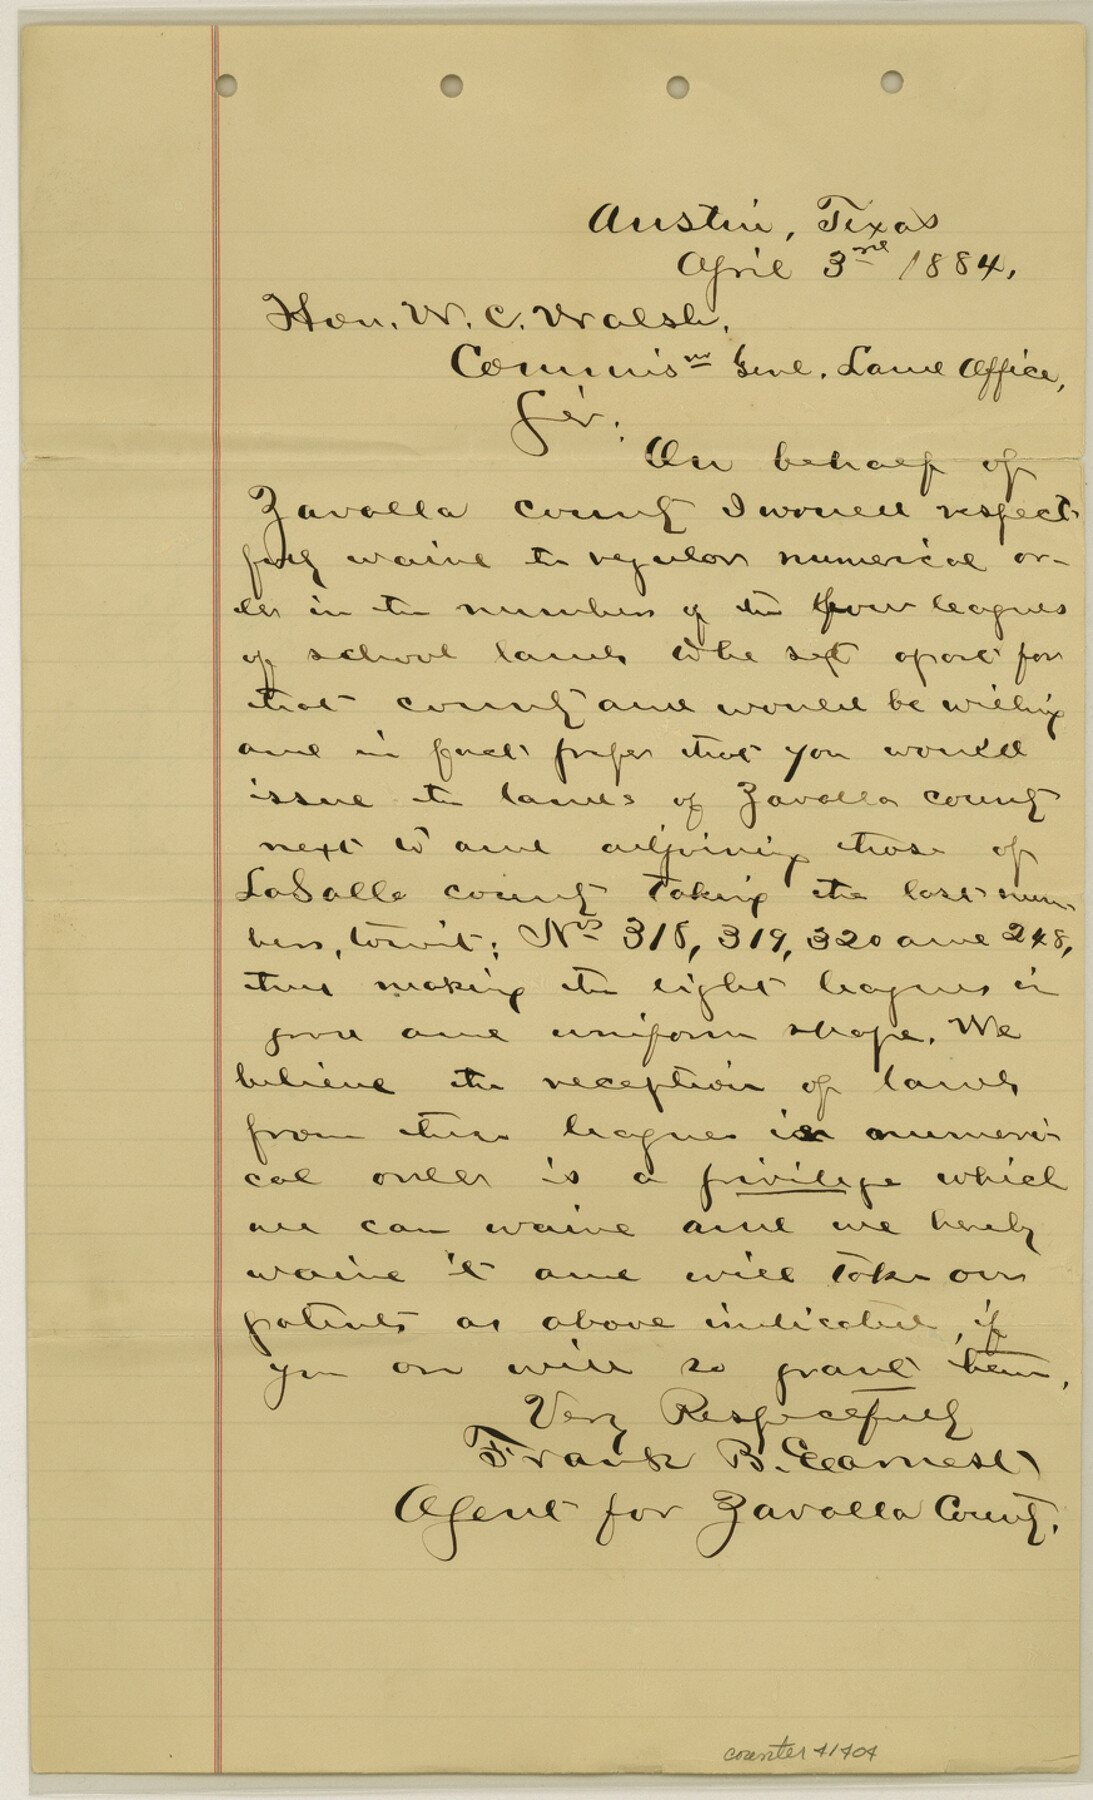 Austin, Texas
April 3rd 1884.
Hon. W. C. Walsh,
Commisnr Genl. Land Office,
Sir:
On behalf of
Zavalla county I would respect-
fully waive the regular numerical or-
der in the numbers of the four leagues
of school lands to be set apart for
that county and would be willing
and in fact prefer that you would
issue the lands of Zavalla county
next to and adjoining those of
LaSalle county taking the last num-
bers, towit: Nos 318, 319, 320 and 248,
thus making the eight leagues in
good and uniform shape. We
believe the reception of lands
from these leagues in numeri-
cal order is a privilege which
we can waive and we hereby
waive it and will take our
patents as above indicated, if
you can will so grant them.
Very Respectfully
Frank B. Earnest
Agent for Zavalla County.
counter 41404